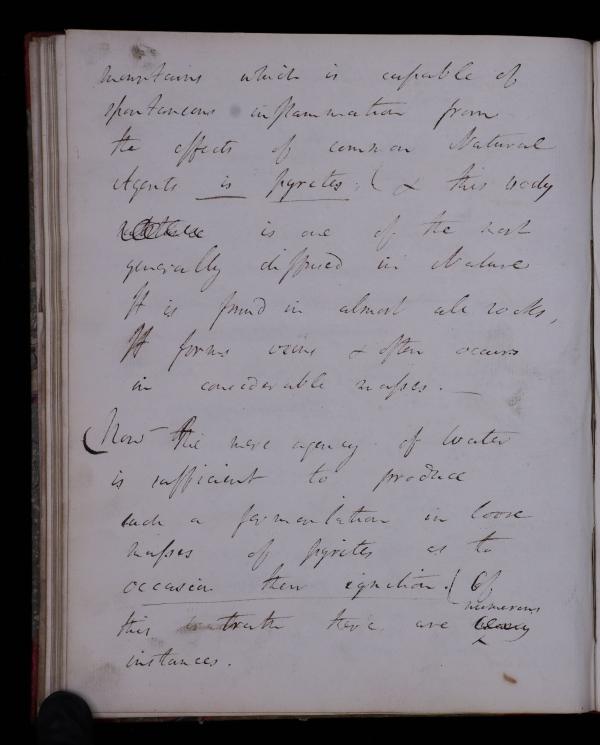 mountains which is capable of
spontaneous inflammation from
the effects of common Natural
Agents is pyrites; ( & this body
is one of the most
generally diffused in Nature
It is found in almost all rocks,
It forms veins & often occurs
in considerable masses. —
(Now the mere agency of Water
is sufficient to produce
such a fermentation in loose
masses of pyrites as to
occasion their ignition. ( Of
numerous
this truth there are
instances.